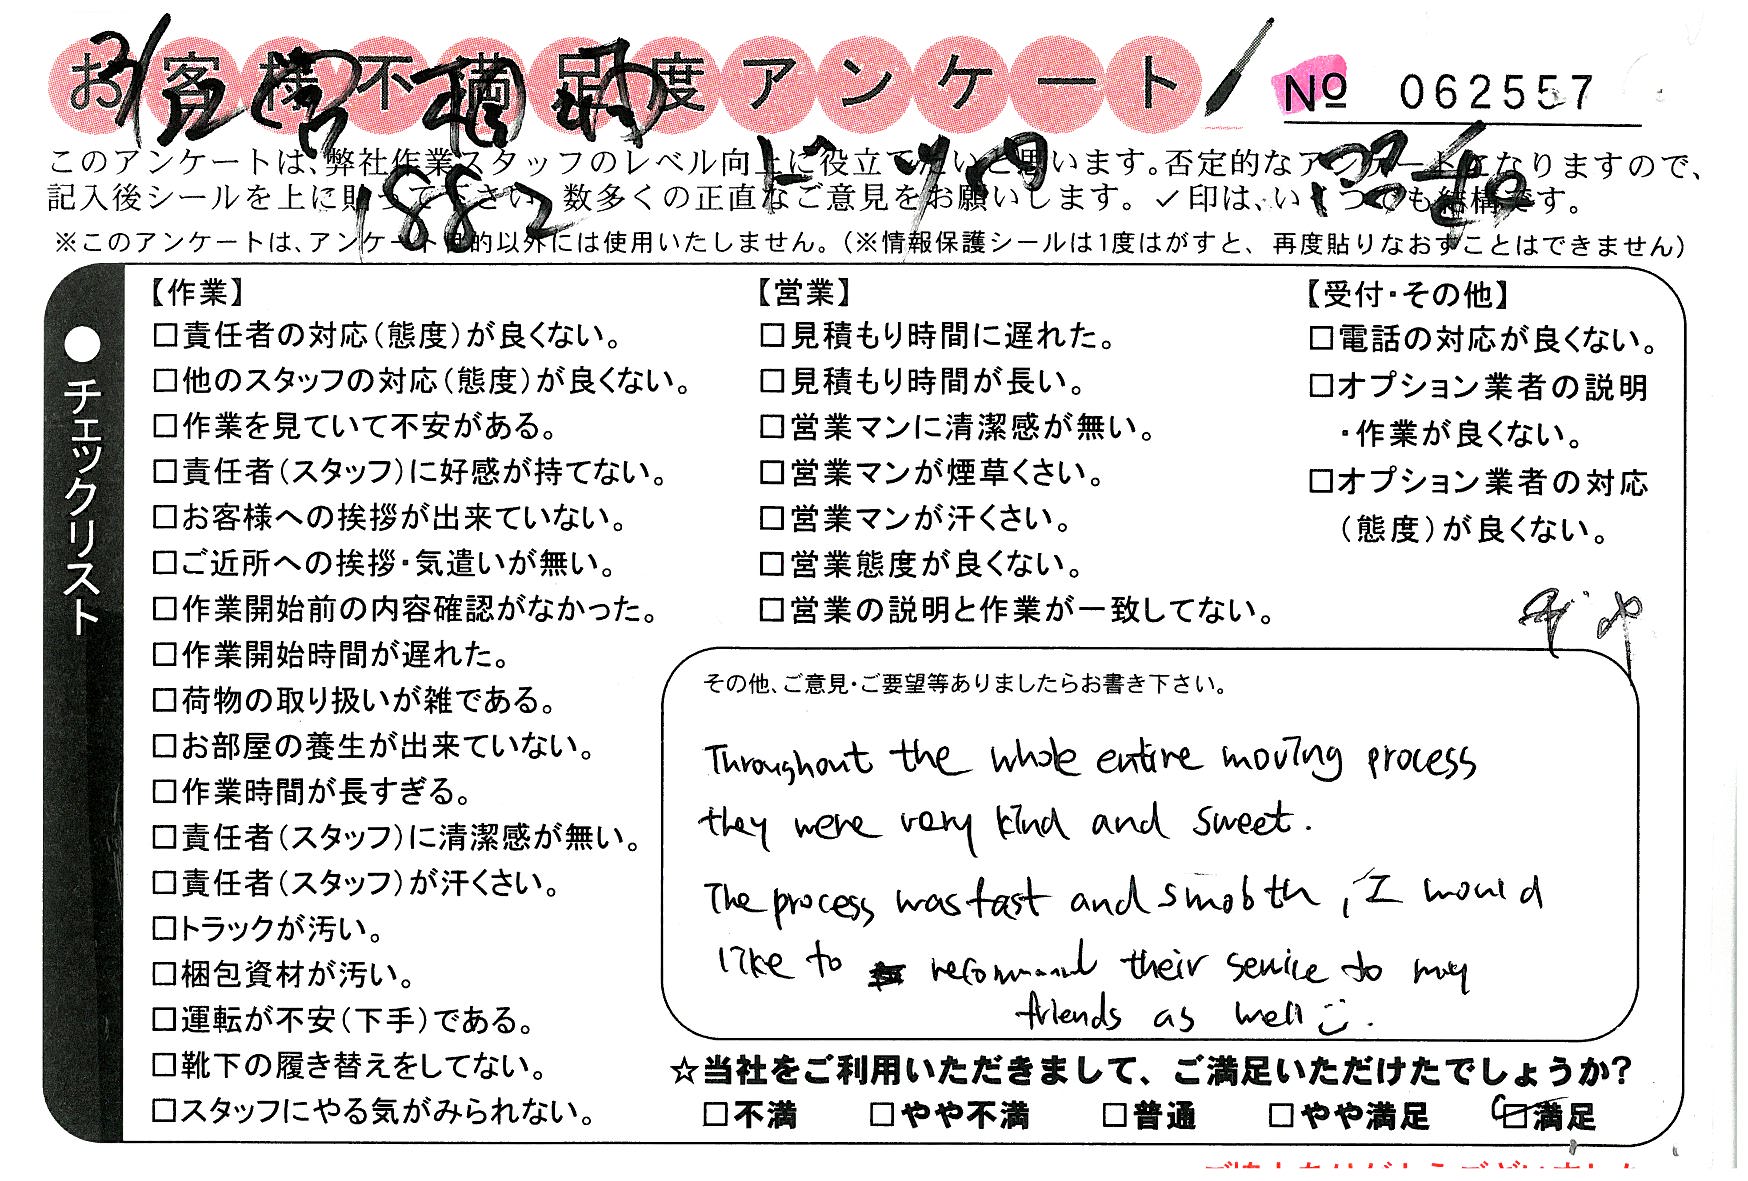 お客様不満足度アンケート
№ 062557
このアンケートは、弊社作業スタッフのレベル向上に役立てたいと思います。否定的なアンケートになりますので、
記入後シールを上に貼って下さい。数多くの正直なご意見をお願いします。✓印は、いくつでも結構です。
1882
※このアンケートは、アンケート目的以外には使用いたしません。(※情報保護シールは1度はがすと、再度貼りなおすことはできません)
●チェックリスト
【作業】
□責任者の対応(態度)が良くない。
□他のスタッフの対応(態度)が良くない。
□作業を見ていて不安がある。
□責任者(スタッフ)に好感が持てない。
□お客様への挨拶が出来ていない。
□ご近所への挨拶・気遣いが無い。
□作業開始前の内容確認がなかった。
□作業開始時間が遅れた。
□荷物の取り扱いが雑である。
□お部屋の養生が出来ていない。
□作業時間が長すぎる。
□責任者(スタッフ)に清潔感が無い。
□責任者(スタッフ)が汗くさい。
□トラックが汚い。
□梱包資材が汚い。
□運転が不安(下手)である。
□靴下の履き替えをしてない。
□スタッフにやる気がみられない。
【営業】
□見積もり時間に遅れた。
□見積もり時間が長い。
□営業マンに清潔感が無い。
□営業マンが煙草くさい。
□営業マンが汗くさい。
□営業態度が良くない。
□営業の説明と作業が一致してない。
【受付・その他】
□電話の対応が良くない。
□オプション業者の説明
・作業が良くない。
□オプション業者の対応
(態度)が良くない。
その他、ご意見・ご要望等ありましたらお書き下さい。
Throughout the whole entire moving process
they were very kind and sweet.
The process was fast and smooth, I would
like to recommend their service to my
friends as well
☆当社をご利用いただきまして、ご満足いただけたでしょうか?
□不満 □やや不満 □普通 □やや満足 □満足